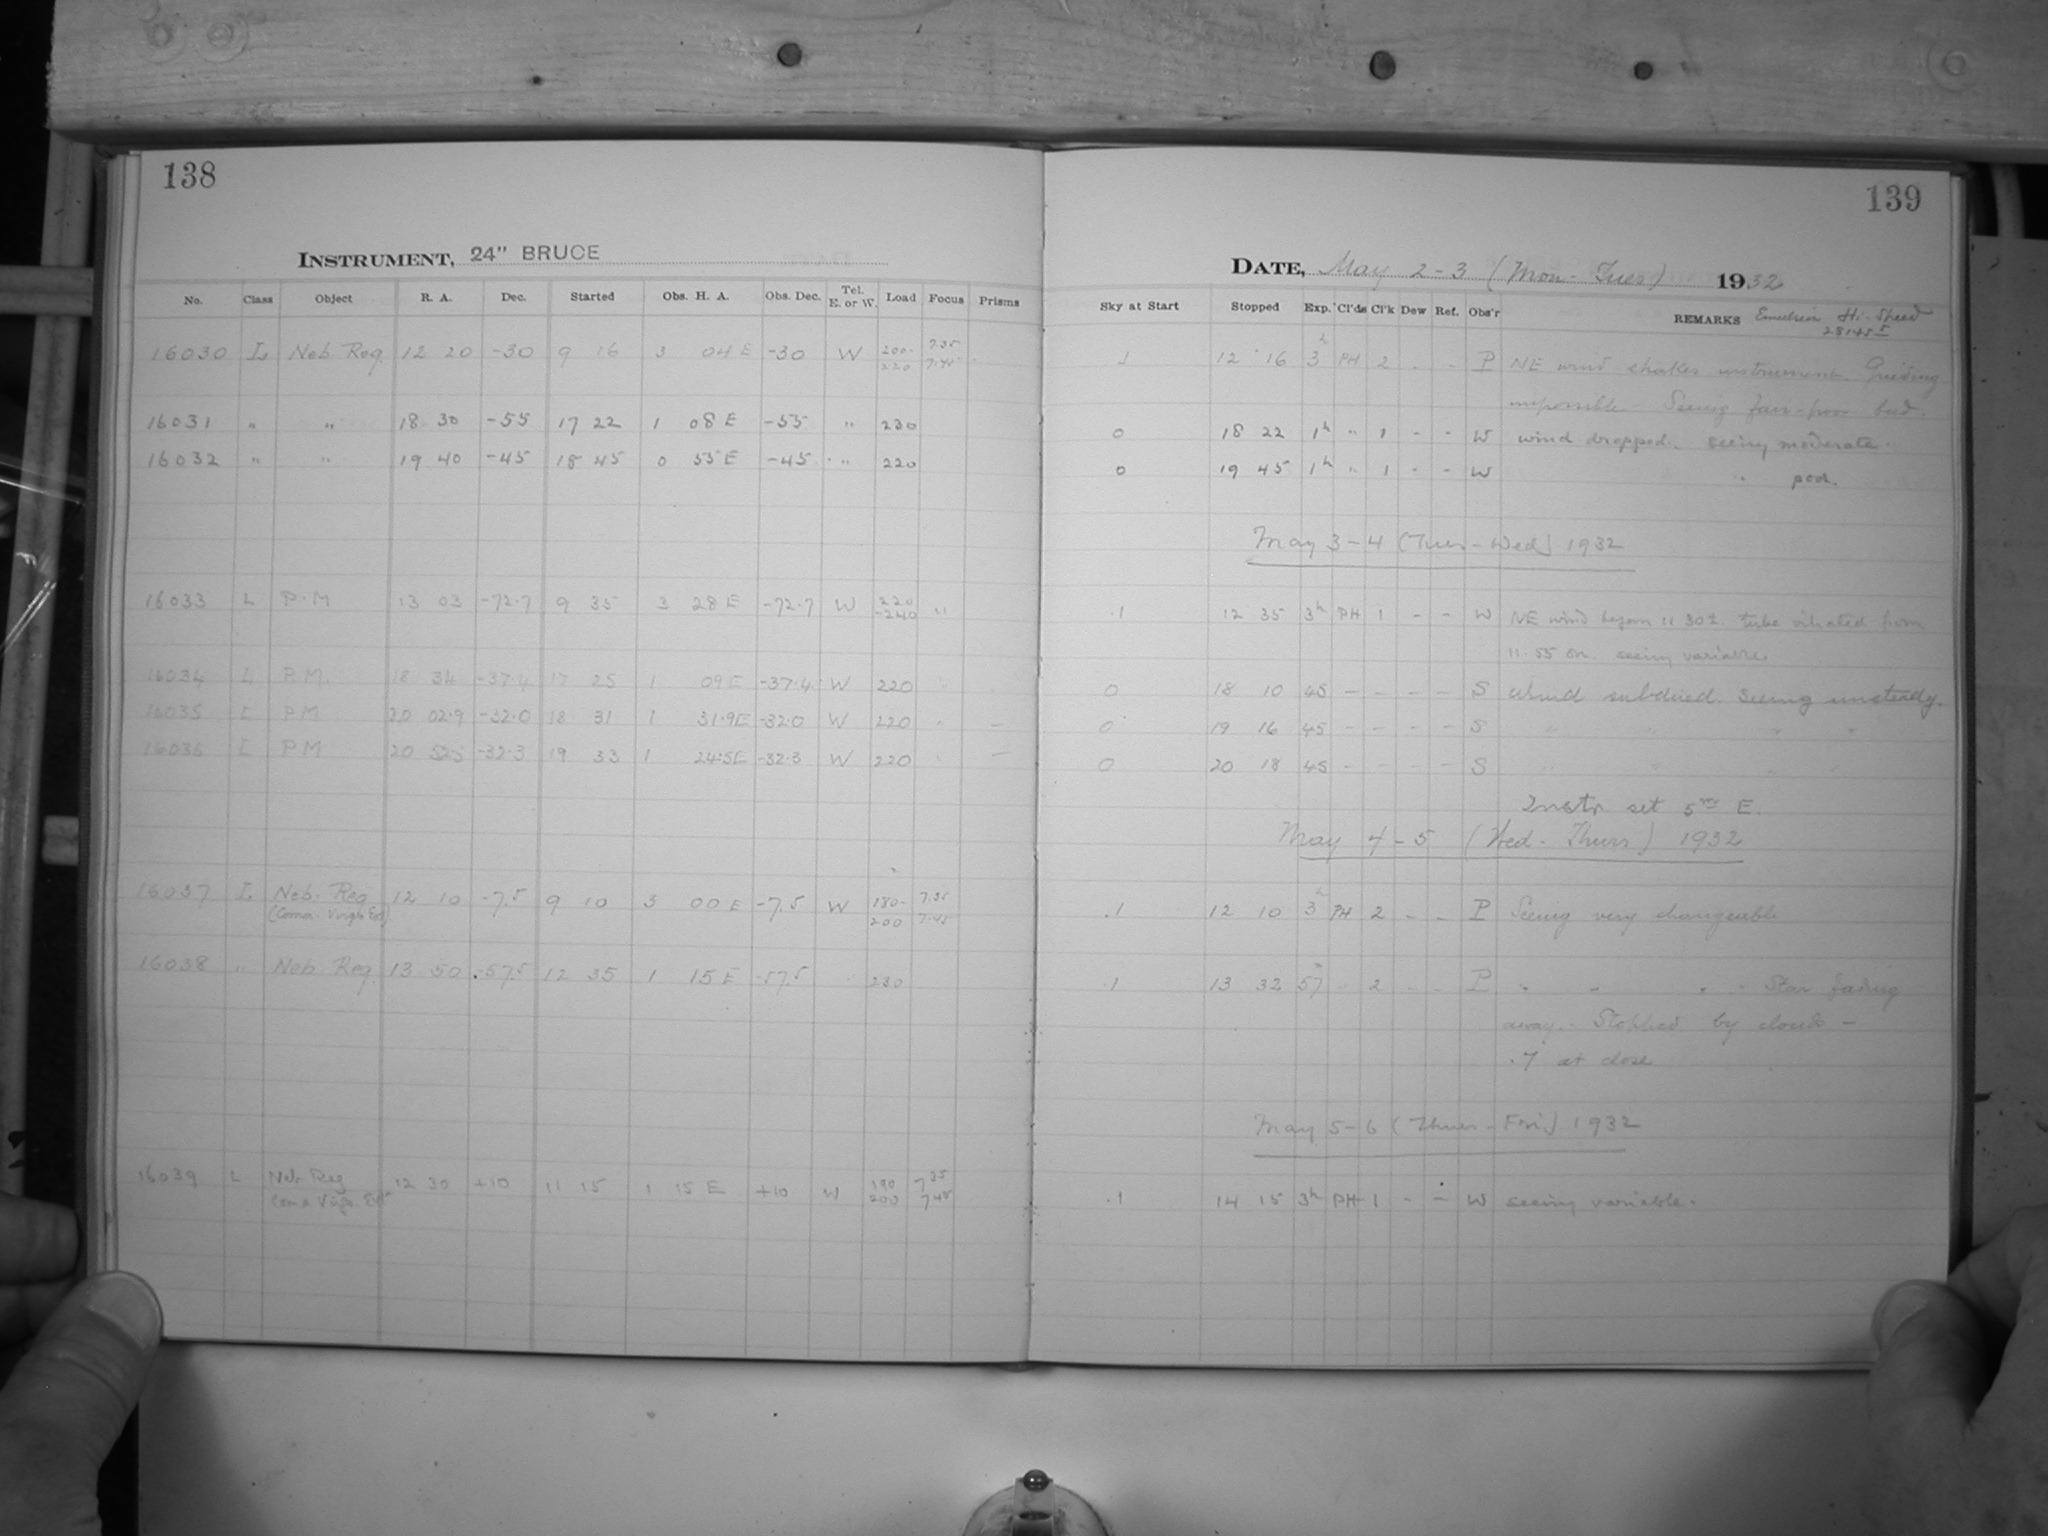 138
INSTRUMENT, 24" BRUCE
No. Class Object R. A. Dec. Started Obs. H. A. Obs. Dec. Tel. E. or W. Load Focus Prisms
16030 L Neb. Reg. 12 20 -30 9 16 3 04 E -30 W 200- 7.35
220 7.45
16031 " " 18 30 -55 17 22 1 08 E -55 " 230
16032 " " 19 40 -45 18 45 0 55 E -45 " 220
16033 L P.M 13 03 -72.7 9 35 3 28 E -72.7 W 220 "
-240
16034 L P.M. 18 34 -37.4 17 25 1 09 E -37.4 W 220 "
16035 L PM 20 02.9 -32.0 18 31 1 31.9E -32.0 W 220 " -
16036 L PM 20 52.5 -32.3 19 33 1 24.5E -32.3 W 220 " -
16037 L Neb. Reg. 12 10 -7.5 9 10 3 00 E -7.5 W 180- 7.35
(Coma-Virgo Ext) 200 7.45
16038 " Neb. Reg. 13 50 -57.5 12 35 1 15 E -57.5 " 230
16039 L Neb Reg 12 30 +10 11 15 1 15 E +10 W 190 7.35
Coma Virgo. Ext 200 7.45
139
DATE, May 2-3 (Mon-Tues) 1932
Sky at Start Stopped Exp. Cl'ds Cl'k Dew Ref. Obs'r REMARKS Emulsion Hi-Speed
28145
1 12 16 3h PH 2 - - P NE wind shakes instrument. Guiding
impossible - Seeing fair-poor bad.
0 18 22 1h " 1 - - W wind dropped. seeing moderate.
0 19 45 1h " 1 - - W " poor.
May 3-4 (Tues-Wed) 1932
.1 12 35 3h PH 1 - - W NE wind began 11 30 tube vibrated from
11.55 on. seeing variable
0 18 10 45 - - - - S Wind subdued. Seeing unsteady.
0 19 16 45 - - - - S " " " "
0 20 18 45 - - - - S " " " "
Instr set 5 E.
May 4-5 (Wed-Thurs) 1932
.1 12 10 3h PH 2 - - P Seeing very changeable
.1 13 32 57m " 2 - - P " " " " Star fading
away. - Stopped by clouds -
.7 at close
May 5-6 (Thurs-Fri) 1932
.1 14 15 3h PH 1 - - W seeing variable.